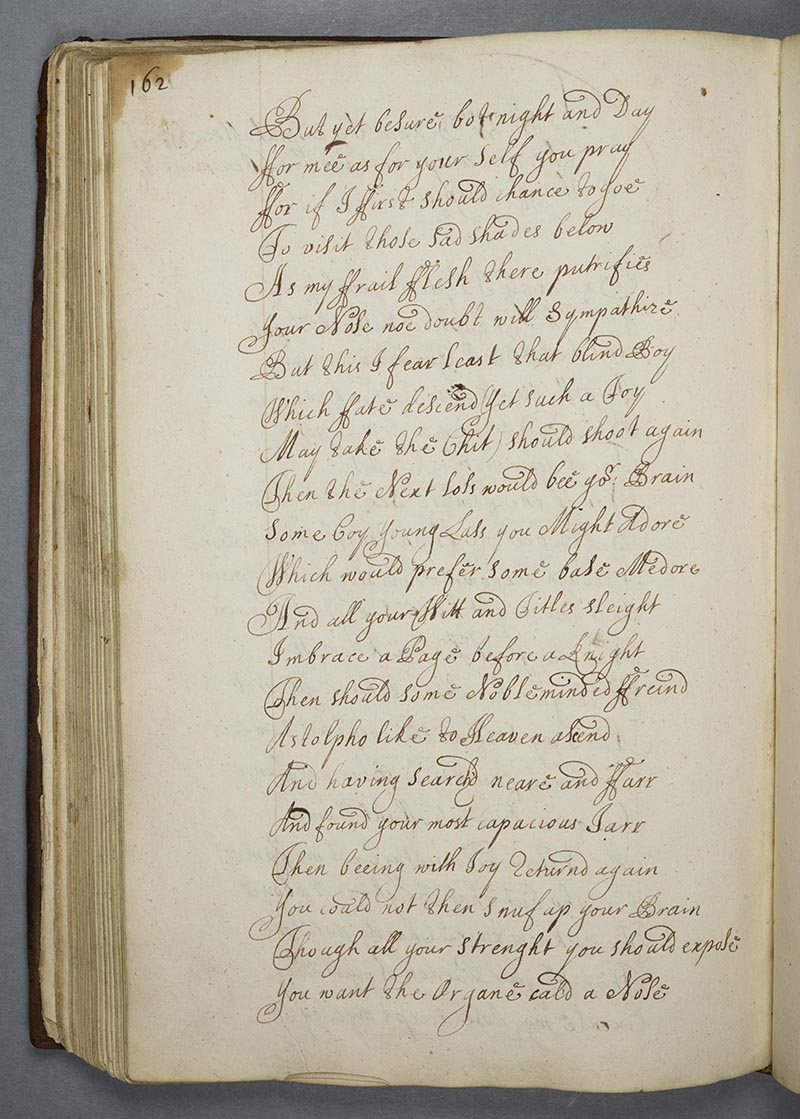 162
But yet besure both night and Day
ffor mee as for your self you pray
ffor if I ffirst should chance to goe
To visit those sad shades below
As my ffrail fflesh there putrifies
Your Nose noe doubt will Sympathize
But this I fear least that blind Boy
Which ffate defend (Yet such a Toy
May take the Chit) should shoot again
Then the Next loss would bee yor: Brain
Some Coy Young Lass you Might Adore
Which would prefer some base Medore
And all your Witt and Titles sleight
Imbrace a Page before a Knight
Then should some Nobleminded ffreind
Astolpho like to Heaven asend
And having Searchd neare and ffarr
And found your most capacious Jarr
Then beeing with Joy Returnd again
You could not then Snuf up your Brain
Though all your strenght you should expose
You want the Organe cald a Nose